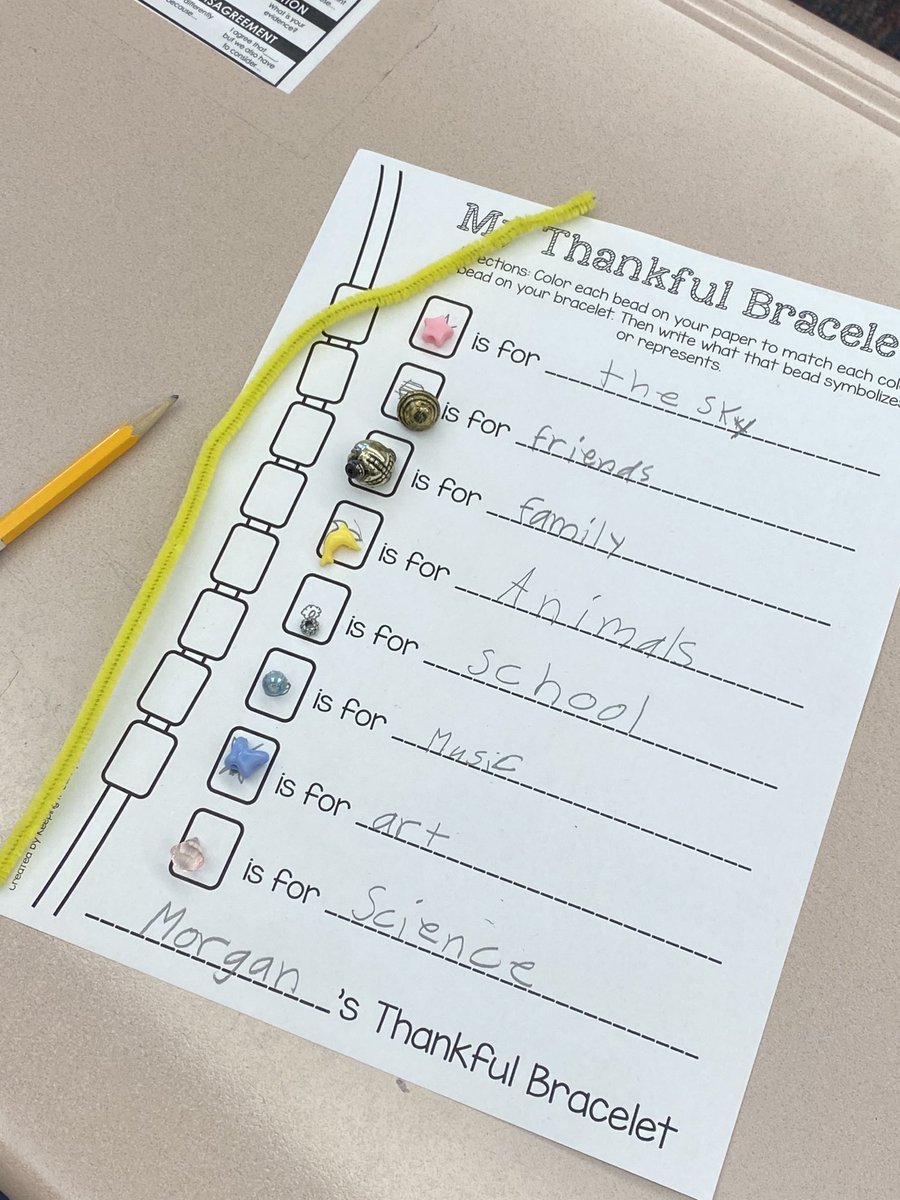 ION
What is your
evidence?
ISAGREEMENT
differently
because...
I agree that
but we also have
to consider...
Thankful Bracele
ections: Color each bead on your paper to match each col
bead on your bracelet. Then write what that bead symbolizes
or represents.
is for the sky
is for friends
is for family
is for Animals
is for school
is for Music
is for art
is for Science
Morgan's Thankful Bracelet
Created by Keeping